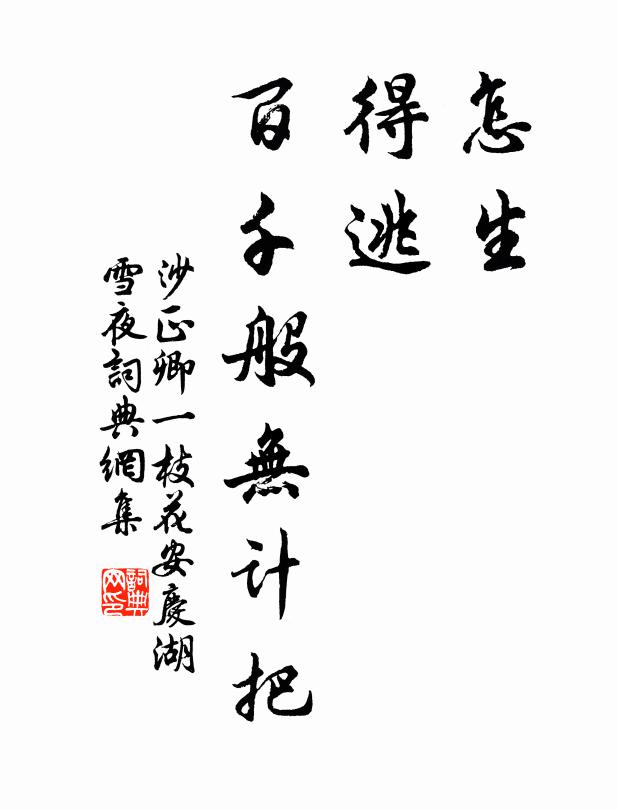 怎生
得逃
百千般無計把
沙正卿一枝花安慶湖
雪夜詞典網集
詞典网印